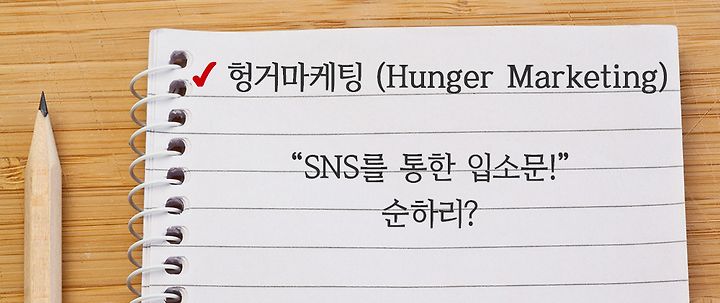 ✔ 헝거마케팅 (Hunger Marketing)
“SNS를 통한 입소문!”
순하리?